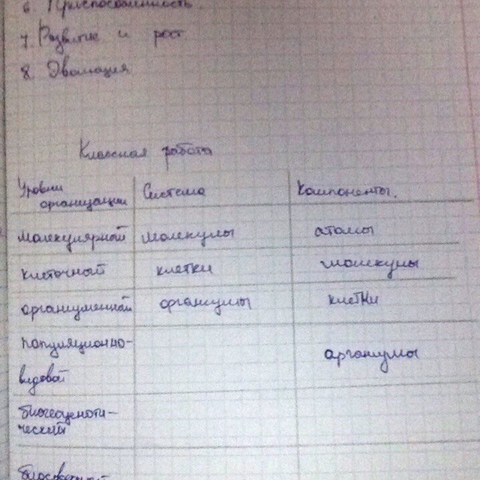 6. Приспособленность.
7. Развитие и рост
8. Эволюция
Классная работа
Уровни организации Система Компоненты.
молекулярный молекулы атомы
клеточный клетки молекулы
организменный организмы клетки
популяционно-
видовой организмы
биогеценоти-
ческий